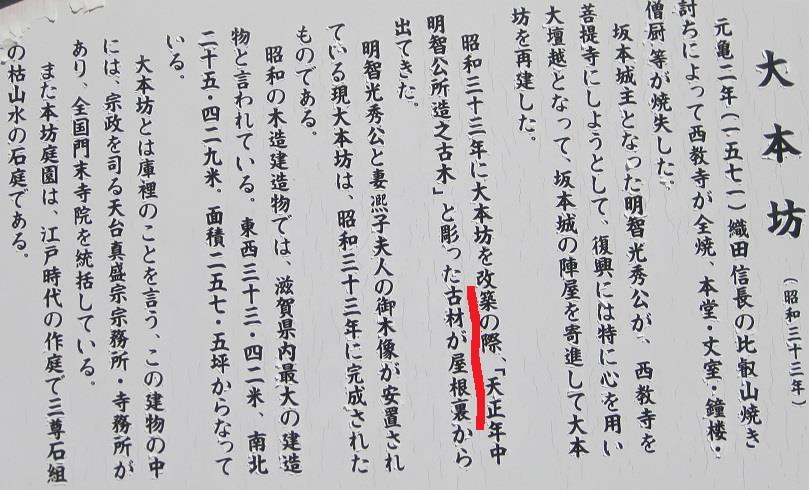 大本坊(昭和三十三年)
元亀二年(一五七一)織田信長の比叡山焼き
討ちによって西教寺が全焼、本堂・丈室・鐘楼・
僧厨等が焼失した。
坂本城主となった明智光秀公が、西教寺を
菩提寺にしようとして、復興には特に心を用い
大壇越となって、坂本城の陣屋を寄進して大本
坊を再建した。
昭和三十三年に大本坊を改築の際、「天正年中
明智公所造之古木」と彫った古材が屋根裏から
出てきた。
明智光秀公と妻凞子夫人の御木像が安置され
ている現大本坊は、昭和三十三年に完成された
ものである。
昭和の木造建造物では、滋賀県内最大の建造
物と言われている。東西三十三・四二米、南北
二十五・四二九米。面積二五七・五坪からなって
いる。
大本坊とは庫裡のことを言う、この建物の中
には、宗政を司る天台真盛宗宗務所・寺務所が
あり、全国門末寺院を統括している。
また本坊庭園は、江戸時代の作庭で三尊石組
の枯山水の石庭である。